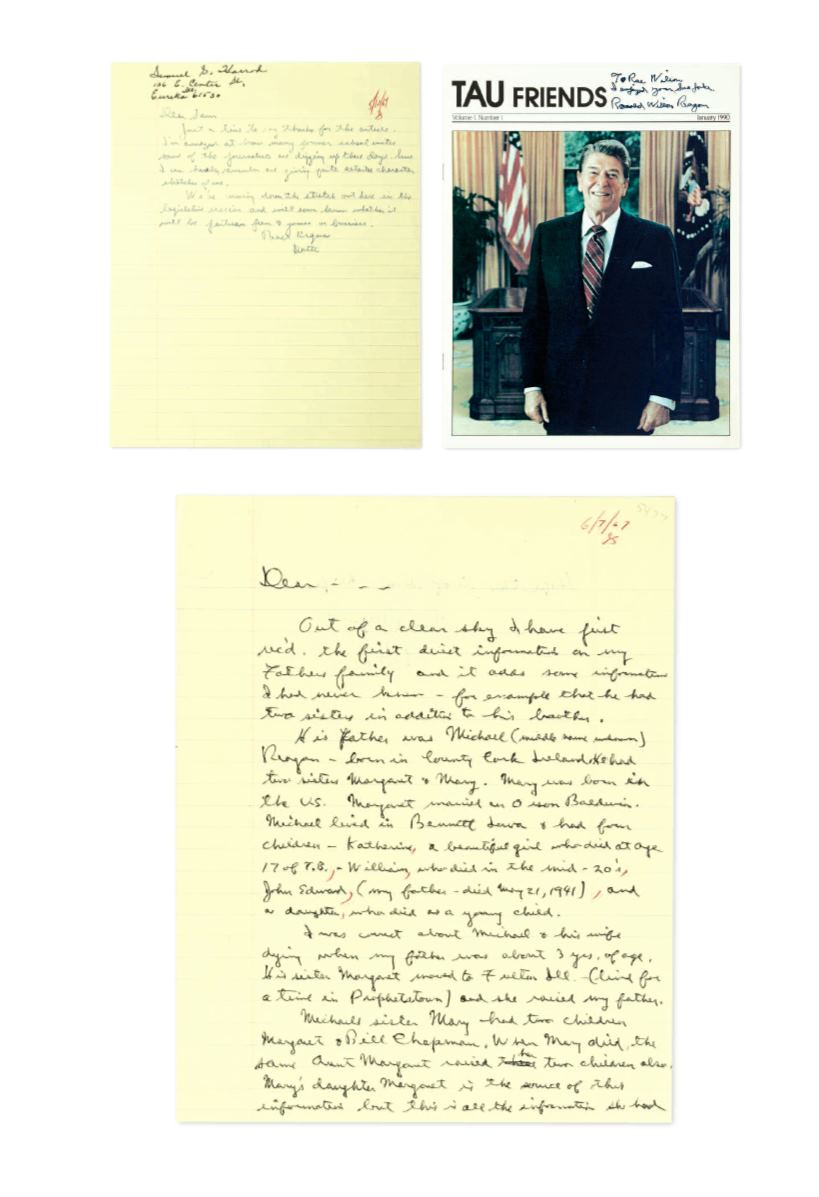 Samuel G. Harrod
106 E. Center St.
Eureka Ill. 61530
Dear Sam
Just a line to say thanks for the article.
I'm amazed at how many former school mates
some of the journalists are digging up these days.
I can hardly remember are giving quite detailed character
sketches of me.
We're moving down the stretch out here in the
legislative session and will soon know whether it
will be
Best Regards
Dutch
TAU FRIENDS
To Rae Wilson
I enjoyed your
Ronald Wilson Reagan
Volume 1, Number 1
January 1990
6/7/67
Dear, - - -
Out of a clear sky I have just
rec'd. the first direct information on my
Fathers family and it adds some information
I had never known - for example that he had
two sisters in addition to his brother.
His father was Michael (middle name unknown)
Reagan - born in County Cork Ireland. He had
two sisters Margaret & Mary. Mary was born in
the U.S. Margaret married an Orson Baldwin.
Michael lived in Bennett Iowa & had four
children - Katherine, a beautiful girl who died at age
17 of T.B., - William, who died in the mid - 20's,
John Edward, (my father - died May 21, 1941), and
a daughter, who died as a young child.
I was correct about Michael & his wife
dying when my father was about 3 yrs. of age.
His sister Margaret moved to Fulton Ill. - (lived for
a time in Prophetstown) and she raised my father.
Michaels sister Mary had two children
Margaret & Bill Chapman. When Mary died, the
same Aunt Margaret raised the two children also.
Mary's daughter Margaret is the source of this
information but this is all the information she had